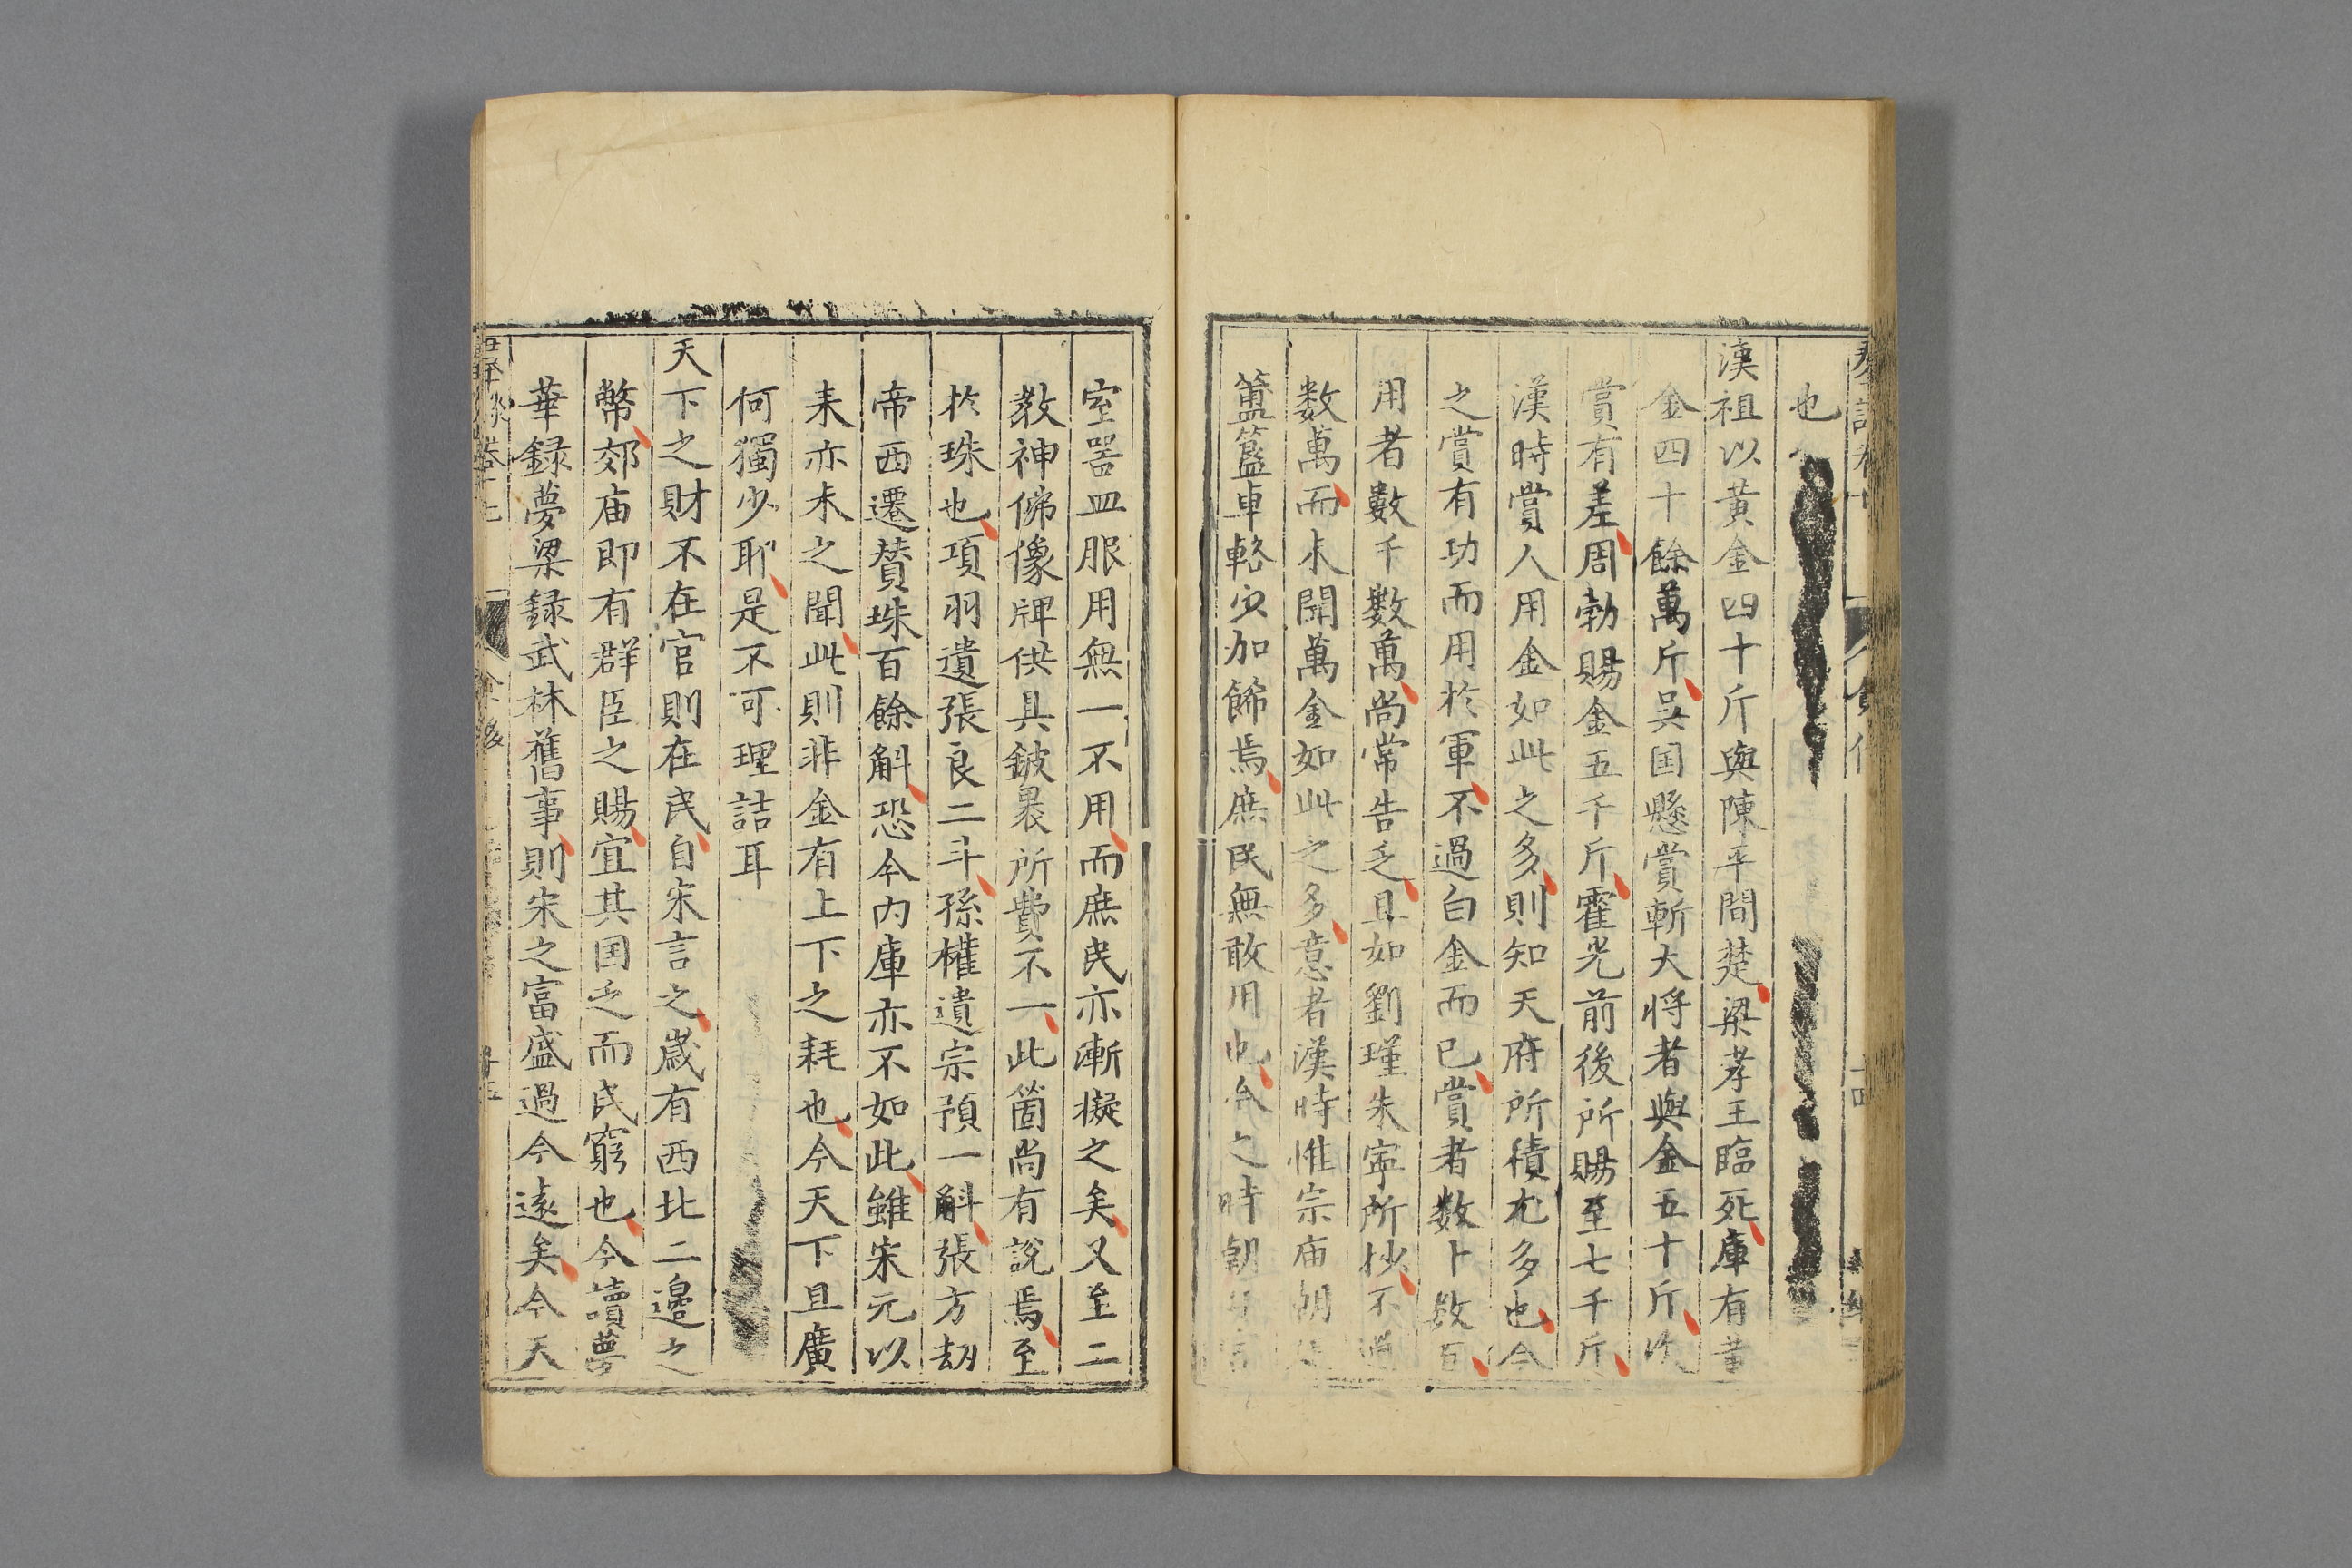 也
漢祖以黃金四十斤與陳平間楚梁孝王臨死庫有黃
金四十餘萬斤吳国懸賞斬大將者與金五十斤次
賞有差周勃賜金五千斤霍光前後所賜至七千斤
漢時賞人用金如此之多則知天府所積尤多也今
之賞有功而用於軍不過白金而已賞者数十数百
用者數千數萬尚常告乏且如劉瑾朱寧所抄不過
数萬而未聞萬金如此之多意者漢時惟宗庙朝廷
簠簋車輅少加餙焉庶民無敢用也今之時朝
室噐皿服用無一不用而庶民亦漸擬之矣又至二
教神佛像牌供具鈸罍所費不一此箇尚有說焉至
於珠也項羽遺張良二斗孫權遺宗預一斛張方刼
帝西遷賛珠百餘斛恐今内庫亦不如此雖宋元以
来亦未之聞此則非金有上下之耗也今天下且廣
何獨少耶是不可理詰耳
天下之財不在官則在民自宋言之歳有西北二邊之
幣郊庙即有群臣之賜宜其国乏而民窮也今讀夢
華録夢梁録武林舊事則宋之富盛過今遠矣今天